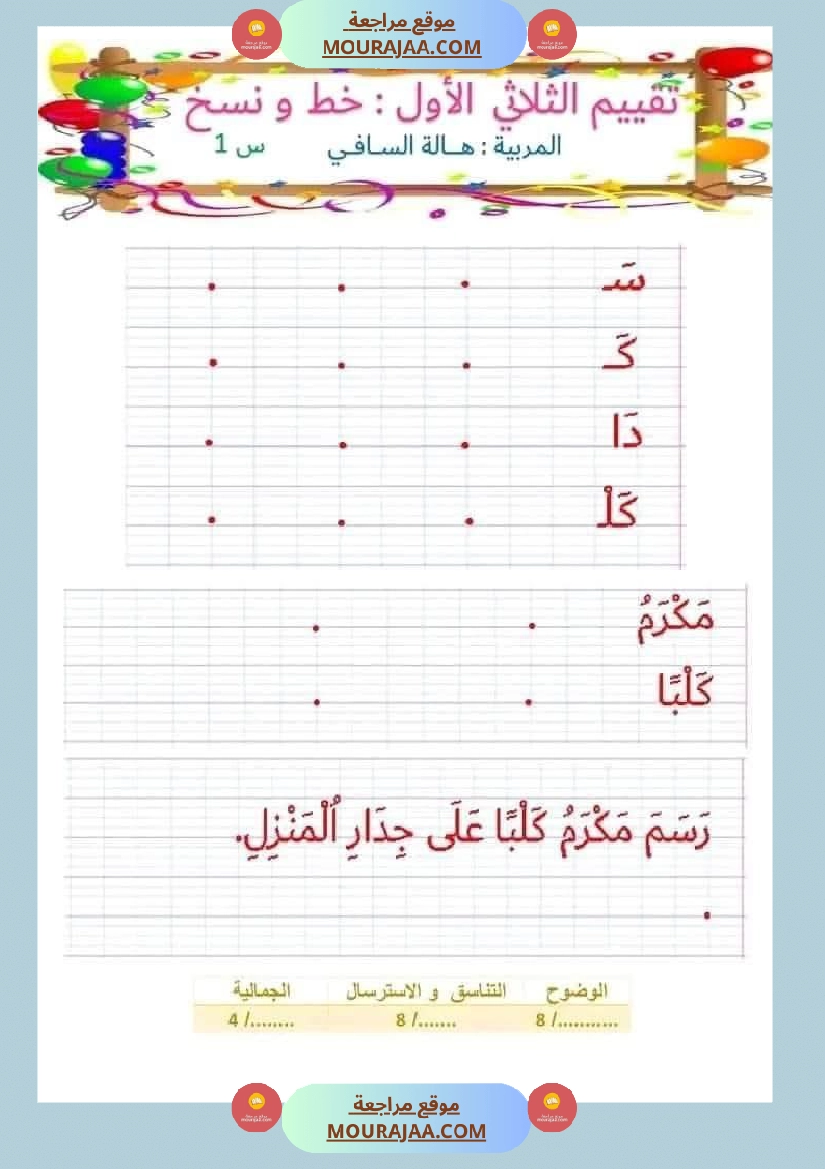 موقع مراجعة
MOURAJAA.COM
تقييم الثلاثي الأول : خط و نسخ
المربية : هـالة السـافـي س 1
سَـ
كَـ
دَا
كَلْـ
مَكْرَمُ
كَلْبًا
رَسَمَ مَكْرَمُ كَلْبًا عَلَى جِدَارِ ٱلْمَنْزِلِ.
الوضوح التناسق و الاسترسال الجمالية
8 /........... 8 /....... 4 /........
موقع مراجعة
MOURAJAA.COM